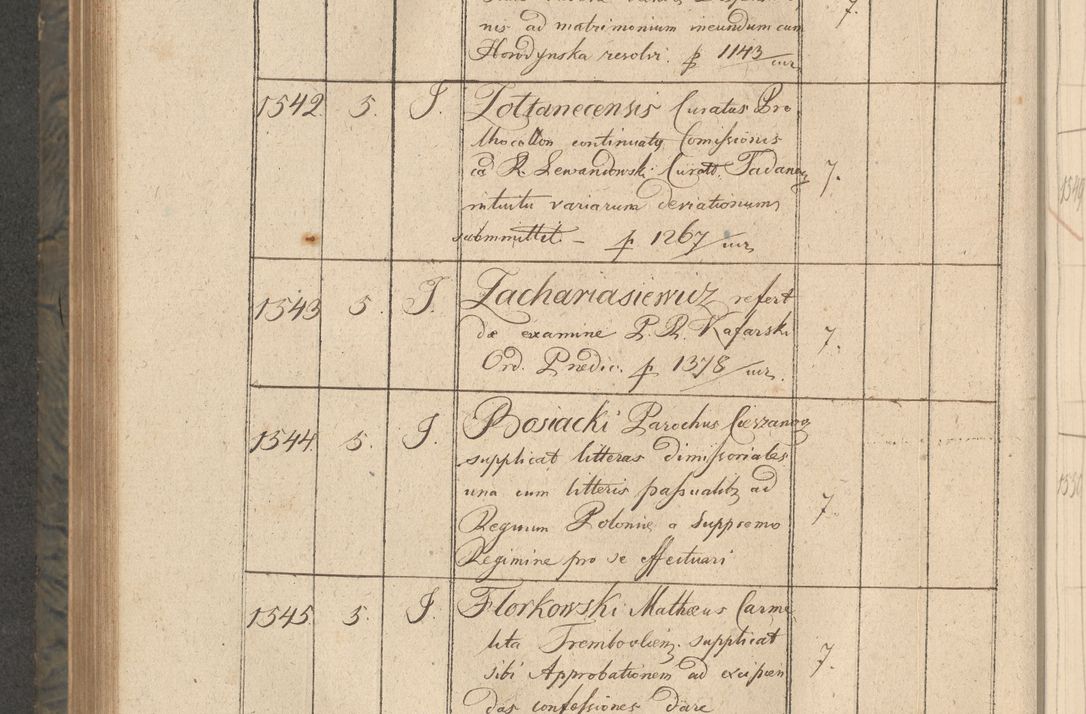 nis ad matrimonium ineundum cum
Howdynska resolvi. p 1143/
7.
1542 5. J. Zottanecensis Curatus Pro
thocollon continuatę Comissionis
ca R. Lewandowski Curato Tadaney
intuitu variarum deviationum
submittet. – p 1267/
7.
1543 5. J. Zachariasiewicz refert
de examine P. R. Kafarski
Ord. Predic. p 1378/
7.
1544 5. J. Bosiacki Parochus Cieszanov
supplicat litteras dimissoriales
una cum litteris passualibz ad
Regnum Polonię a Suppremo
Regimine pro se effectuari
7.
1545 5. J. Florkowski Mathæus Carme
lita Tremboolien. supplicat
sibi Approbationem ad excipien
das confessiones dare
7.